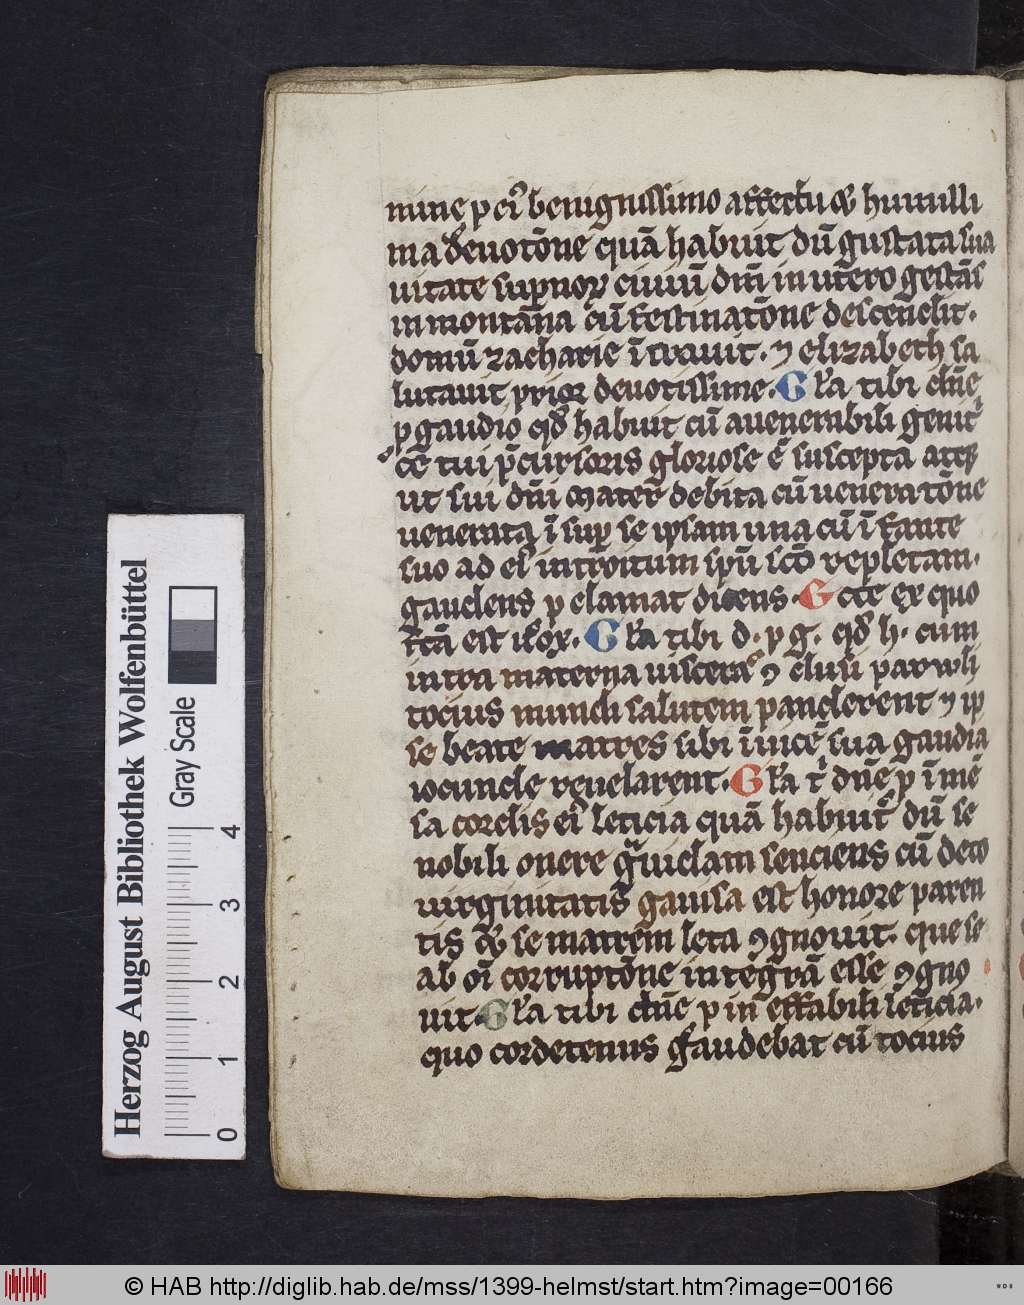 mine p eiꝰ benignissimo affectu ⁊ humilli
ma deuotōne quā habuit dū gustata sua
uitate supnoꝝ ciuiū dn̄i in utero gestās
in montana cū festinatōne descendit.
domū zacharie ītrauit. ⁊ elizabeth sa
lutauit prior deuotissime. Gr̄a tibi dn̄e
p gaudio qd̄ habuit cū a uenerabili genit̄
ce tui p̄cursoris gloriose ē suscepta atqꝫ
ut sui dn̄i mater debita cū ueneratōne
uenerata ī sup se ipsam una cū īfante
suo ad eiꝰ introitum spū scō repletam.
gaudens p clamat dicens. Ecce ex quo
f̄cā est uox. Gr̄a tibi d. p g. qd̄ h. cum
intra materna uiscera ꝯclusi paruuli
tocius mundi salutem panderent ⁊ ip
se beate matres sibi īuicē sua gaudia
iocunde reuelarent. Gr̄a t̄ dn̄e p īmē
sa cordis eiꝰ leticia quā habuit dū se
nobili onere grauidam senciens cū deco
uirginitatis gauisa est honore paren
tis qꝫ se matrem leta ꝯgnouit. que se
ab oī corruptōne integrā esse ꝯgno
uit. Gr̄a tibi dn̄e p ineffabili leticia.
quo cordetenus gaudebat cū tocius
Herzog August Bibliothek Wolfenbüttel
Gray Scale
0 1 2 3 4
© HAB http://diglib.hab.de/mss/1399-helmst/start.htm?image=00166